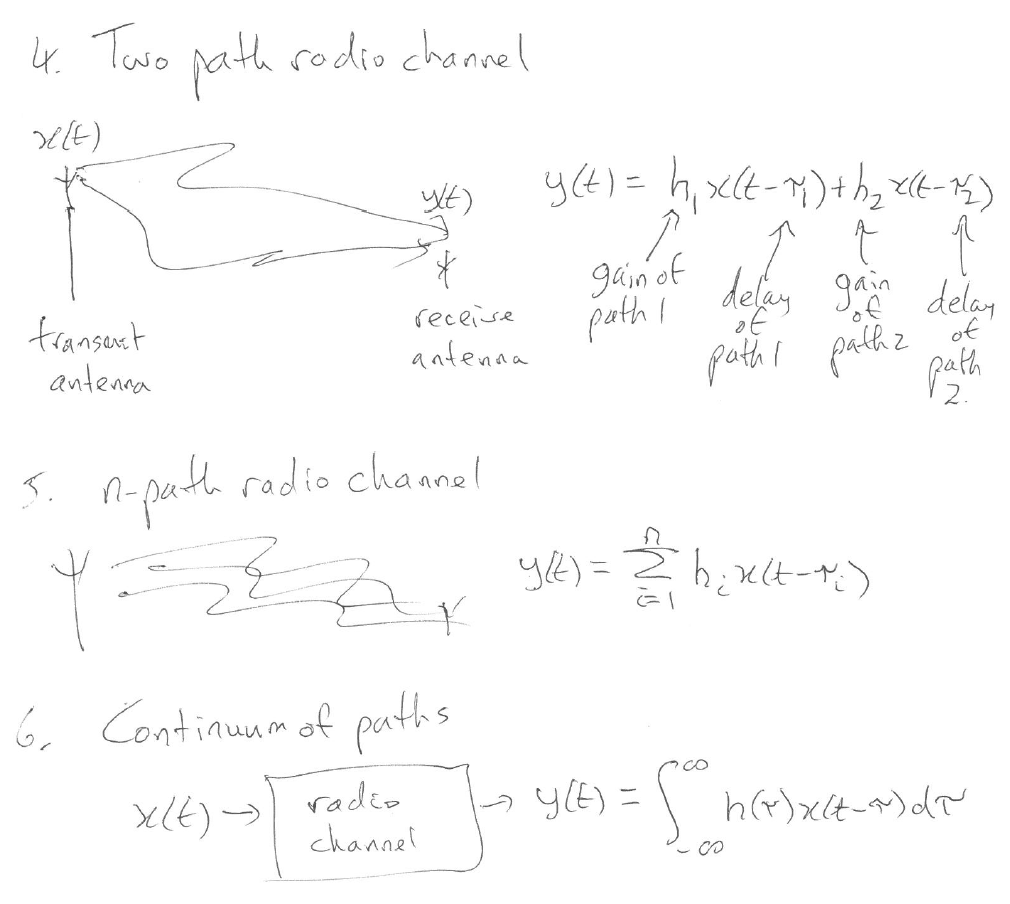 4. Two path radio channel
x(t)
y(t)
transmit
antenna
receive
antenna
y(t) = h₁x(t-τ₁)+h₂x(t-τ₂)
gain of
path 1
delay
of
path 1
gain
of
path 2
delay
of
path
2.
5. n-path radio channel
y(t) = ∑ᵢ₌₁ⁿ hᵢx(t-τᵢ)
6. Continuum of paths
x(t) → radio
channel → y(t) = ∫_{-∞}^{∞} h(τ)x(t-τ)dτ